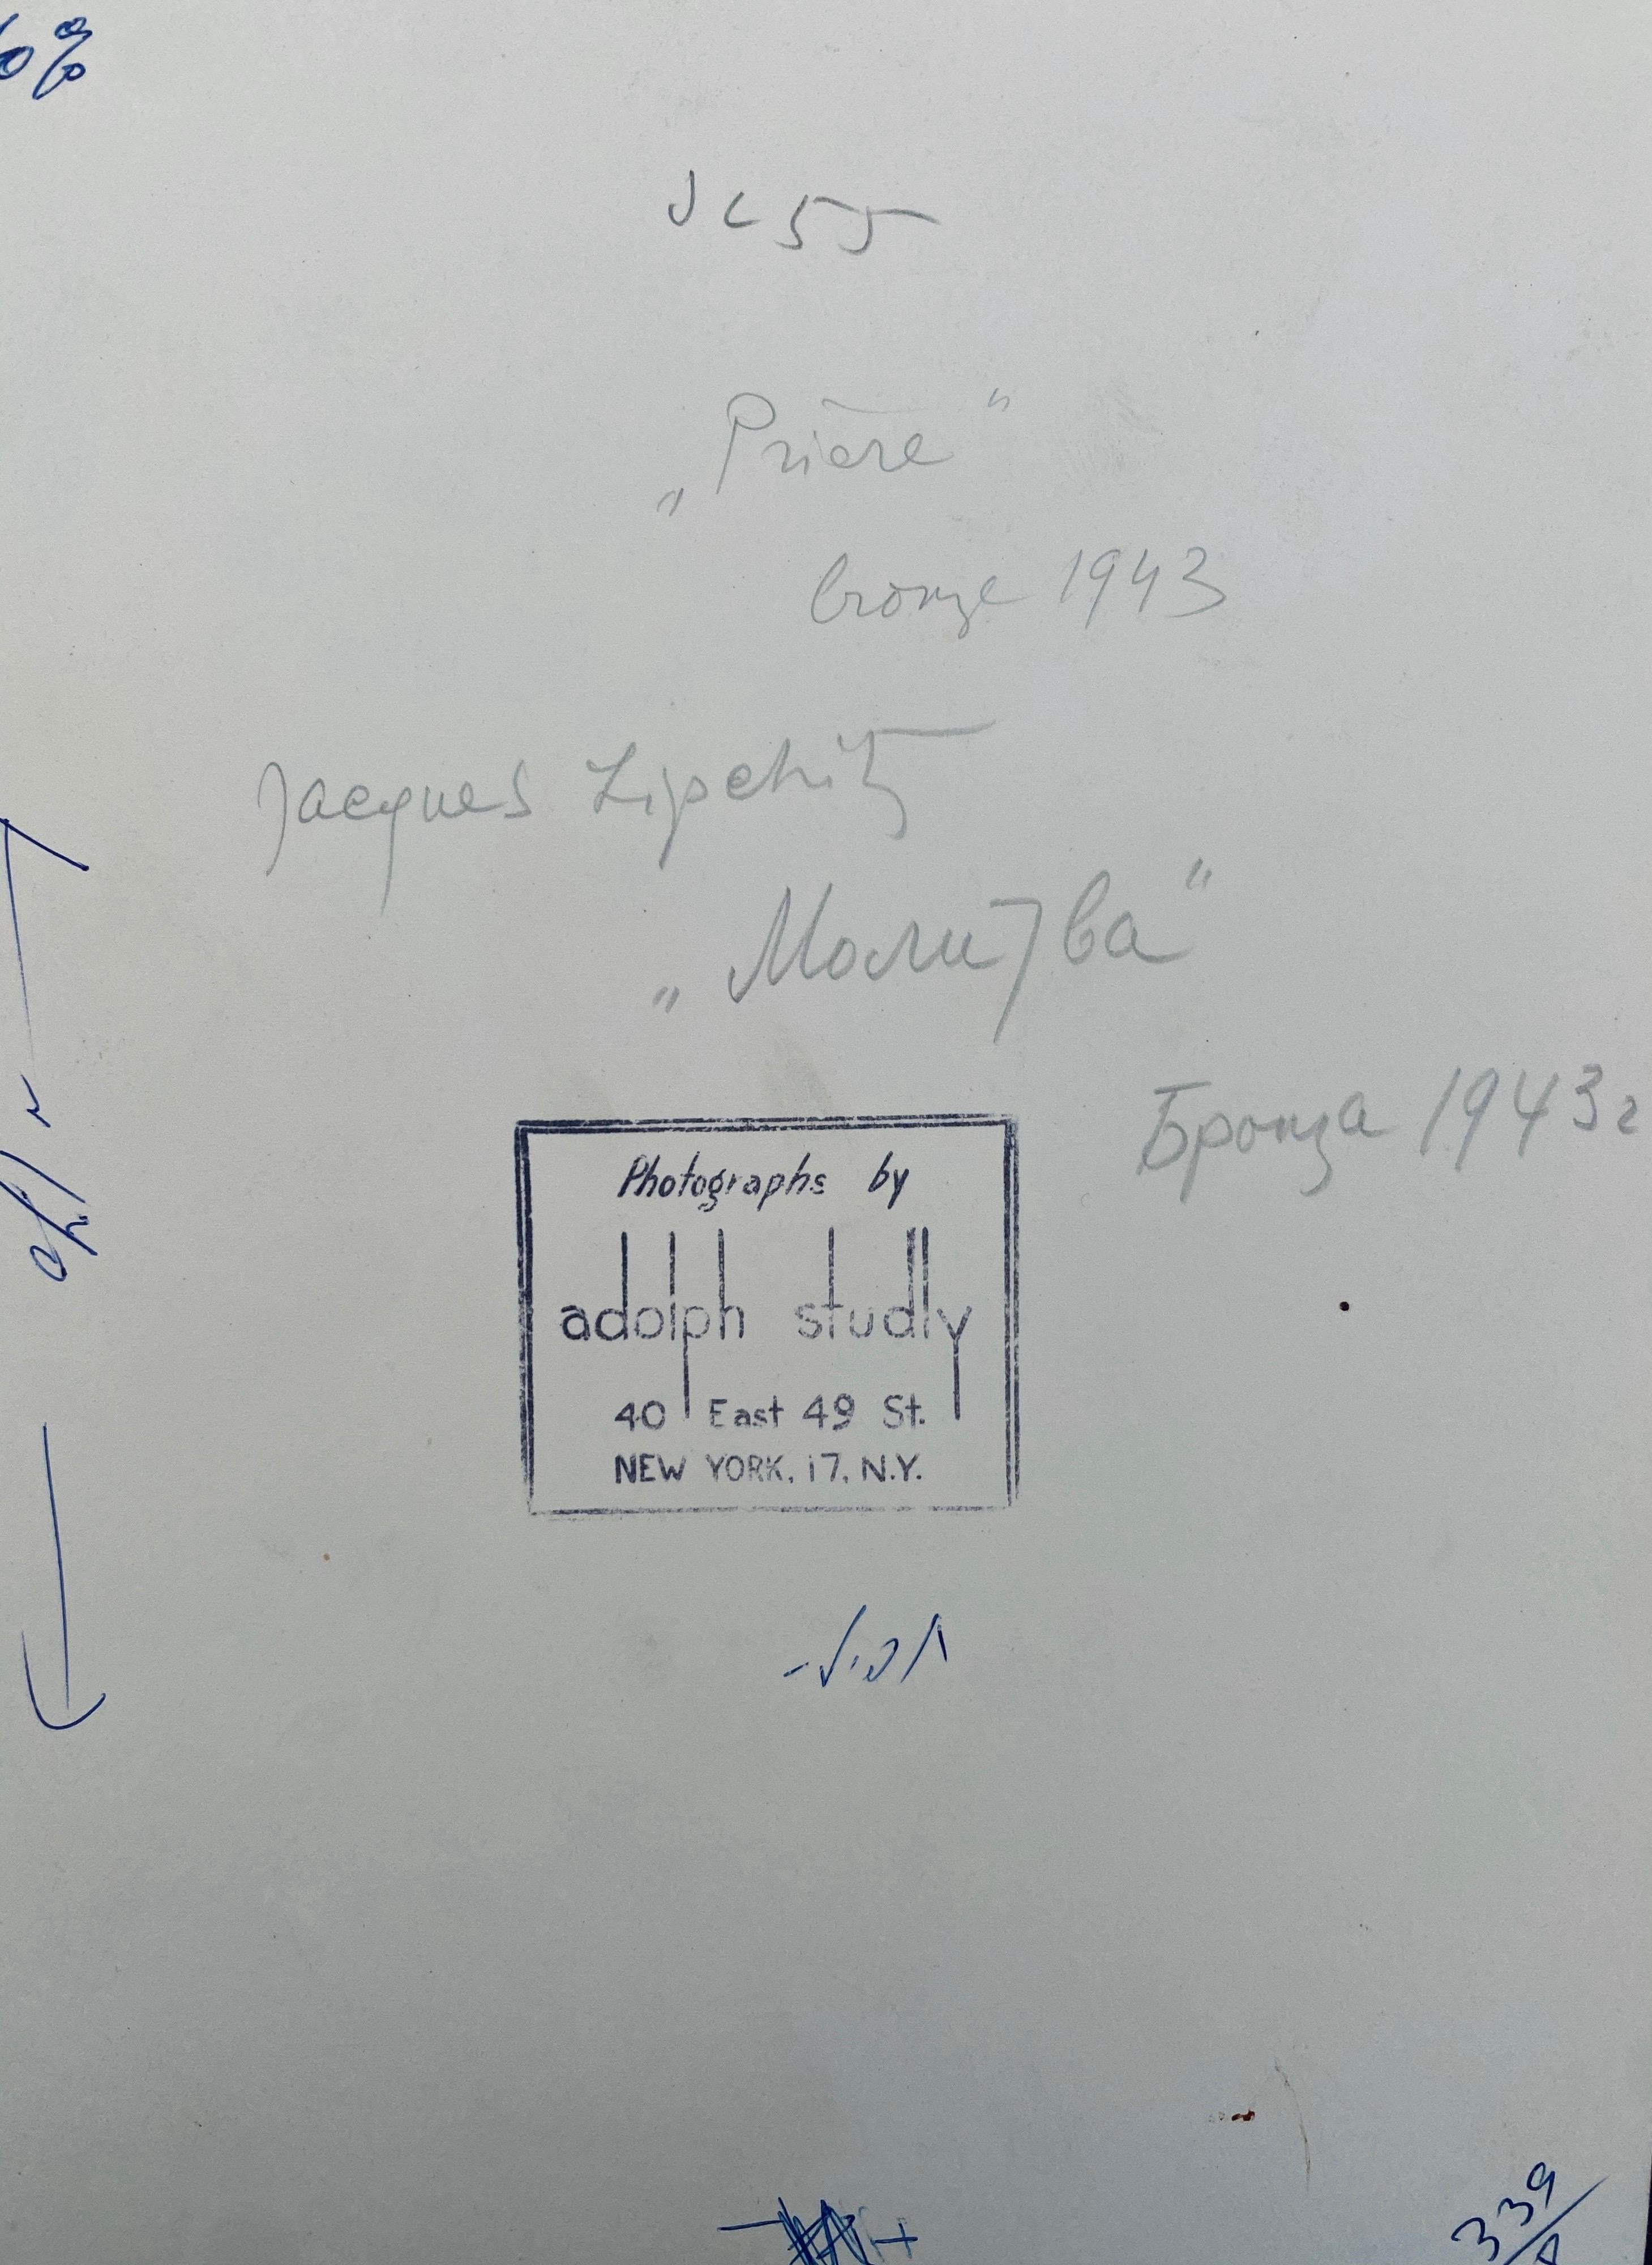 „Prière“
bronze 1943
Jacques Lipchitz
„Молитва“
Бронза 1943 г
Photographs by
adolph studly
40 East 49 St.
NEW YORK, 17, N.Y.
339